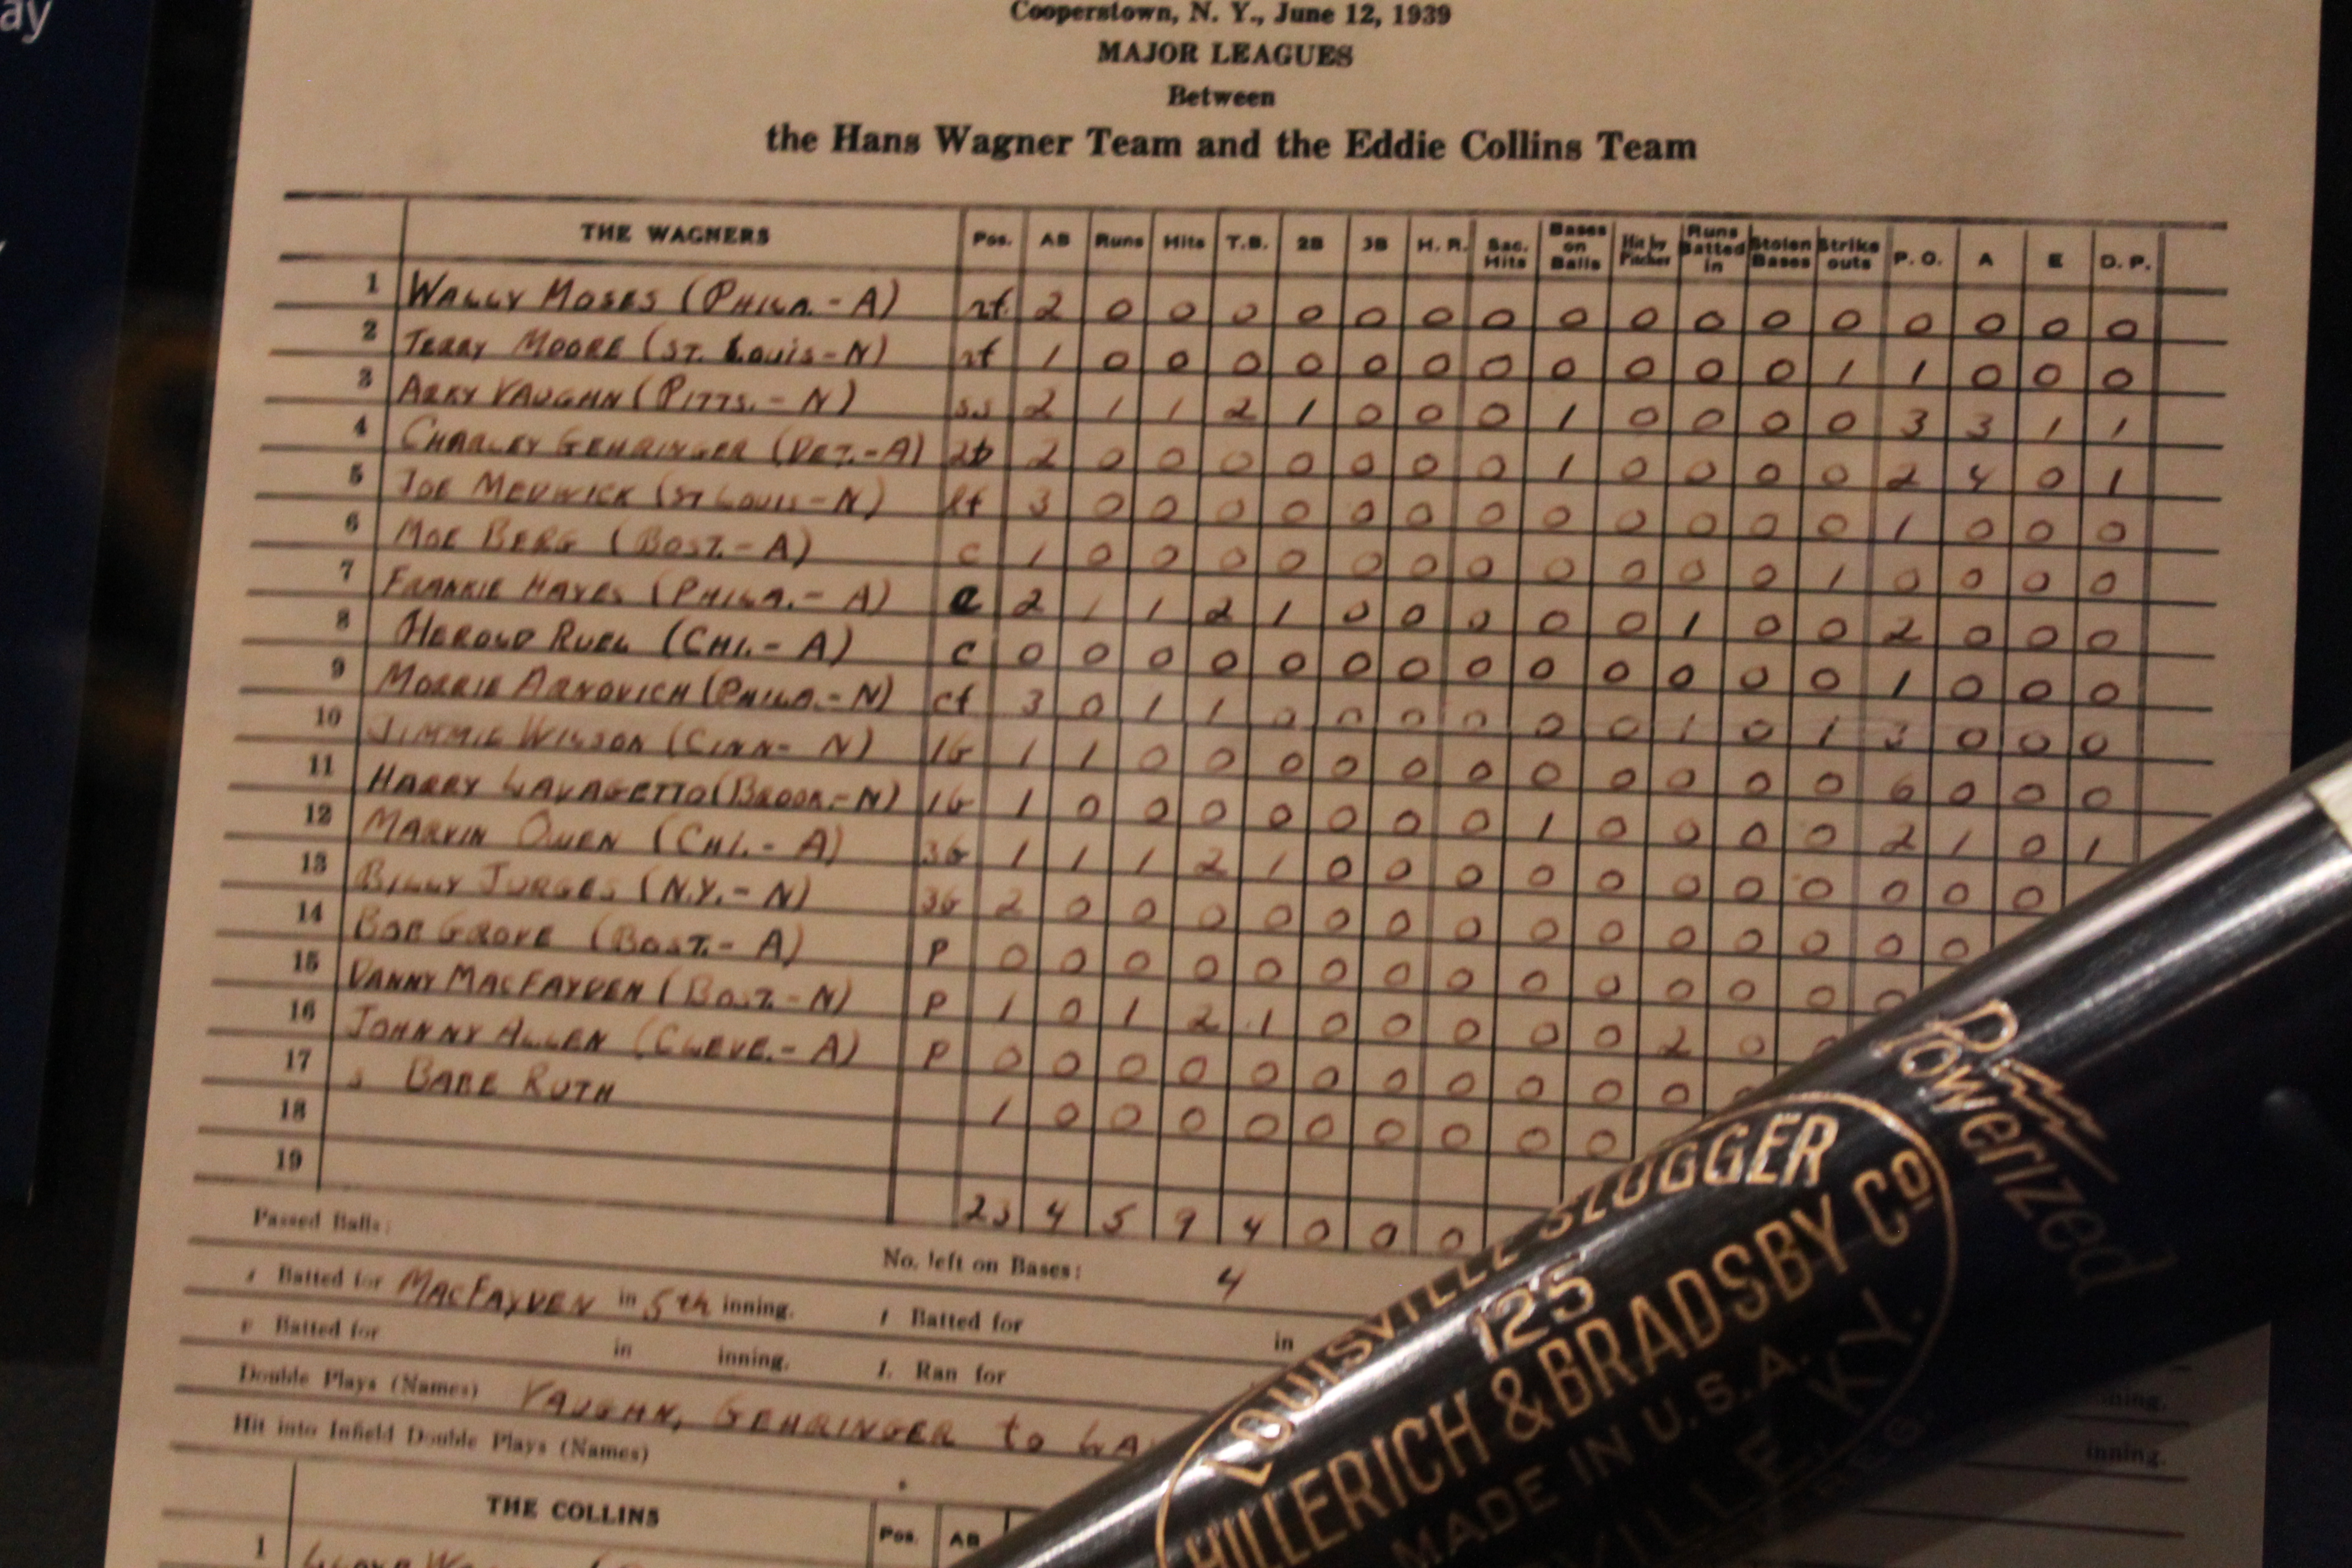 ay
Cooperstown, N. Y., June 12, 1939
MAJOR LEAGUES
Between
the Hans Wagner Team and the Eddie Collins Team
THE WAGNERS Pos. AB Runs Hits T.B. 2B 3B H. R. Sac. Hits Bases on Balls Hit by Pitcher Runs Batted in Stolen Bases Strike outs P. O. A E D. P.
1 WALLY MOSES (PHILA. - A) rf. 2 0 0 0 0 0 0 0 0 0 0 0 0 0 0 0 0
2 TERRY MOORE (ST. LOUIS - N) rf 1 0 0 0 0 0 0 0 0 0 0 0 1 1 0 0 0
3 ARKY VAUGHN (PITTS. - N) ss 2 1 1 2 1 0 0 0 1 0 0 0 0 3 3 1 1
4 CHARLEY GEHRINGER (DET. - A) 2b 2 0 0 0 0 0 0 0 1 0 0 0 0 2 4 0 1
5 JOE MEDWICK (ST LOUIS - N) lf 3 0 0 0 0 0 0 0 0 0 0 0 0 1 0 0 0
6 MOE BERG (BOST. - A) c 1 0 0 0 0 0 0 0 0 0 0 0 1 0 0 0 0
7 FRANKIE HAYES (PHILA. - A) c 2 1 1 2 1 0 0 0 0 0 1 0 0 2 0 0 0
8 HEROLD RUEL (CHI. - A) c 0 0 0 0 0 0 0 0 0 0 0 0 0 1 0 0 0
9 MORRIE ARNOVICH (PHILA. - N) cf 3 0 1 1 0 0 0 0 0 0 1 0 1 3 0 0 0
10 JIMMIE WILSON (CINN - N) 1b 1 1 0 0 0 0 0 0 0 0 0 0 0 6 0 0 0
11 HARRY LAVAGETTO (BROOK. - N) 1b 1 0 0 0 0 0 0 0 1 0 0 0 0 2 1 0 1
12 MARVIN OWEN (CHI. - A) 3b 1 1 1 2 1 0 0 0 0 0 0 0 0 0 0 0
13 BILLY JURGES (N.Y. - N) 3b 2 0 0 0 0 0 0 0 0 0 0 0 0 0 0
14 BOB GROVE (BOST. - A) P 0 0 0 0 0 0 0 0 0 0 0 0 0 0
15 DANNY MACFAYDEN (BOST. - N) P 1 0 1 2 1 0 0 0 0 0 2 0
16 JOHNNY ALLEN (CLEVE. - A) P 0 0 0 0 0 0 0 0 0 0 0 0
17 s BABE RUTH 1 0 0 0 0 0 0 0 0 0
18
19
23 4 5 9 4 0 0 0
Passed Balls: No. left on Bases: 4
s Batted for MACFAYDEN in 5th inning. t Batted for in
Batted for in inning. Ran for
inning.
Double Plays (Names) VAUGHN, GEHRINGER to LA
inning.
Hit into Infield Double Plays (Names)
THE COLLINS Pos. AB
1
Powerized
LOUISVILLE SLUGGER
125
HILLERICH & BRADSBY Co
MADE IN U.S.A.
VILLE, KY.